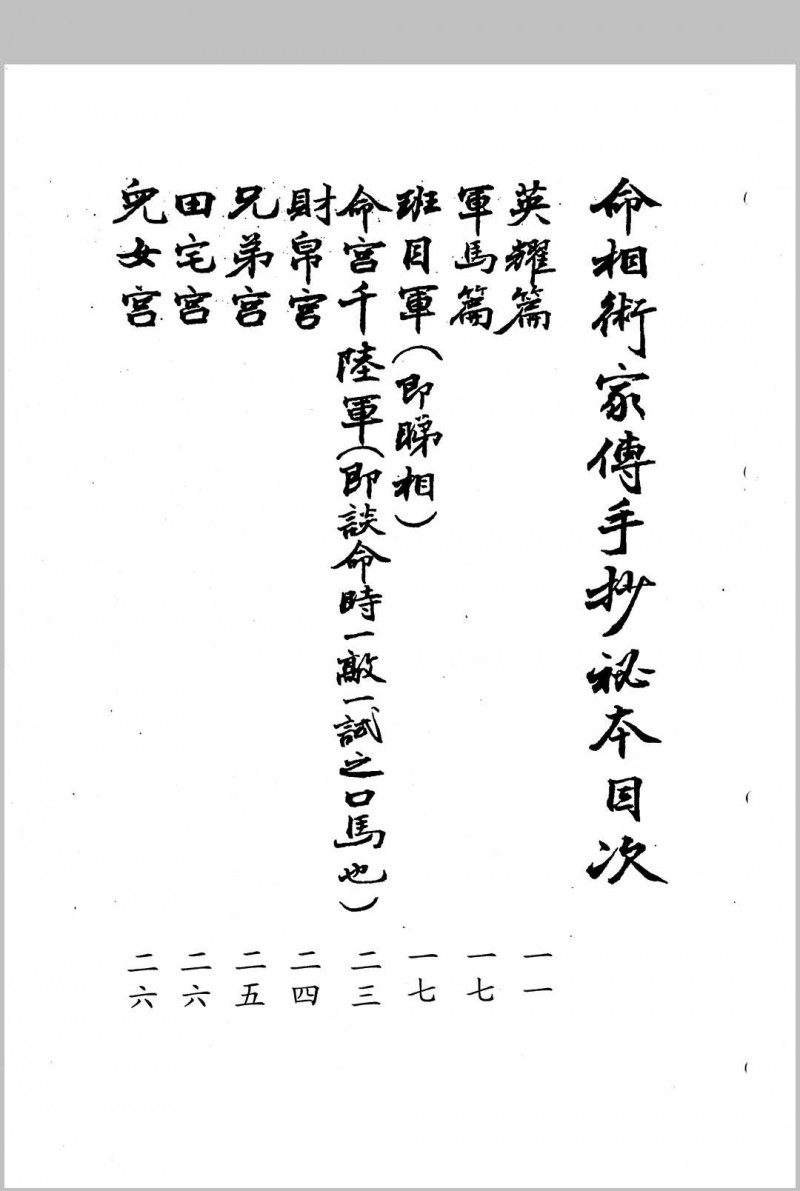 命相術家傳手抄秘本目次
英耀篇 一一
軍馬篇 一七
班目軍（即睇相） 一七
命宮千陸軍（即談命時一敲一試之口馬也） 二三
財帛宮 二四
兄弟宮 二五
田宅宮 二六
兒女宮 二六